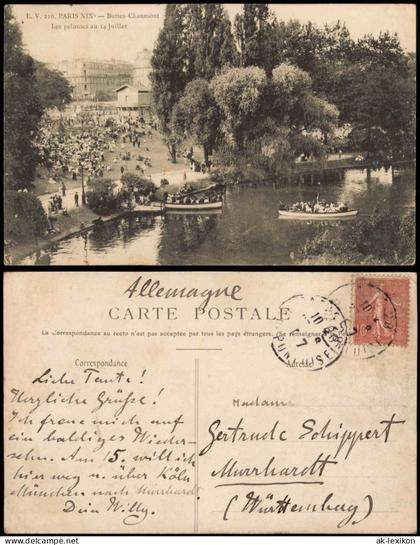 E. V. 210. PARIS XIXe — Buttes-Chaumont
Les pelouses au 14 Juillet
Allemagne
CARTE POSTALE
La Correspondance au recto n'est pas acceptée par tous les pays étrangers. (Se renseigner
Correspondance
Adresse
Liebe Tante!
Herzliche Grüße!
Ich freue mich auf
ein baldiges Wieder-
sehn. Am 15. will ich
hier weg u. über Köln
München nach Murrhardt
Dein Willy.
Madame
Gertrude Schippert
Murrhardt
(Württemberg)
ak-lexikon